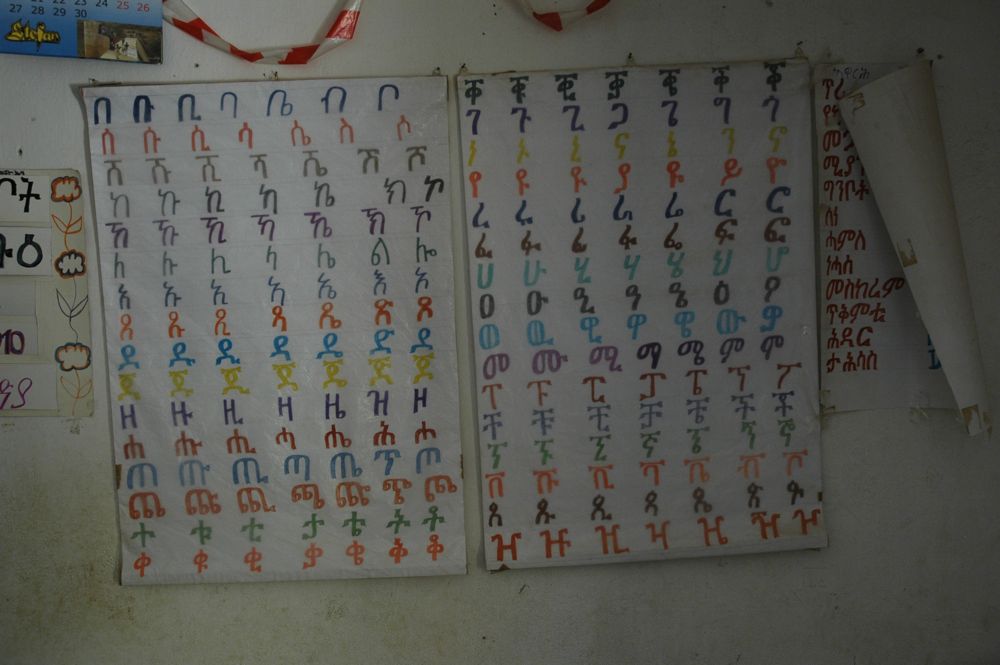 21 22 23 24 25 26
27 28 29 30
Stefan
በ ቡ ቢ ባ ቤ ብ ቦ
ሰ ሱ ሲ ሳ ሴ ስ ሶ
ሸ ሹ ሺ ሻ ሼ ሽ ሾ
ከ ኩ ኪ ካ ኬ ክ ኮ
ኸ ኹ ኺ ኻ ኼ ኽ ኾ
ለ ሉ ሊ ላ ሌ ል ሎ
አ ኡ ኢ ኣ ኤ እ ኦ
ጸ ጹ ጺ ጻ ጼ ጽ ጾ
ደ ዱ ዲ ዳ ዴ ድ ዶ
ጀ ጁ ጂ ጃ ጄ ጅ ጆ
ዘ ዙ ዚ ዛ ዜ ዝ ዞ
ሐ ሑ ሒ ሓ ሔ ሕ ሖ
ጠ ጡ ጢ ጣ ጤ ጥ ጦ
ጨ ጩ ጪ ጫ ጬ ጭ ጮ
ተ ቱ ቲ ታ ቴ ት ቶ
ቀ ቁ ቂ ቃ ቄ ቅ ቆ
ቐ ቑ ቒ ቓ ቔ ቕ ቖ
ገ ጉ ጊ ጋ ጌ ግ ጎ
ነ ኑ ኒ ና ኔ ን ኖ
የ ዩ ዪ ያ ዬ ይ ዮ
ረ ሩ ሪ ራ ሬ ር ሮ
ፈ ፉ ፊ ፋ ፌ ፍ ፎ
ሀ ሁ ሂ ሃ ሄ ህ ሆ
ዐ ዑ ዒ ዓ ዔ ዕ ዖ
ወ ዉ ዊ ዋ ዌ ው ዎ
መ ሙ ሚ ማ ሜ ም ሞ
ፐ ፑ ፒ ፓ ፔ ፕ ፖ
ቸ ቹ ቺ ቻ ቼ ች ቾ
ኘ ኙ ኚ ኛ ኜ ኝ ኞ
ቨ ቩ ቪ ቫ ቬ ቭ ቮ
ጰ ጱ ጲ ጳ ጴ ጵ ጶ
ዠ ዡ ዢ ዣ ዤ ዥ ዦ
ጥሪ
ግንቦት
ሰነ
ሓምለ
ነሓሰ
መስከረም
ጥቅምቲ
ሕዳር
ታሕሳስ